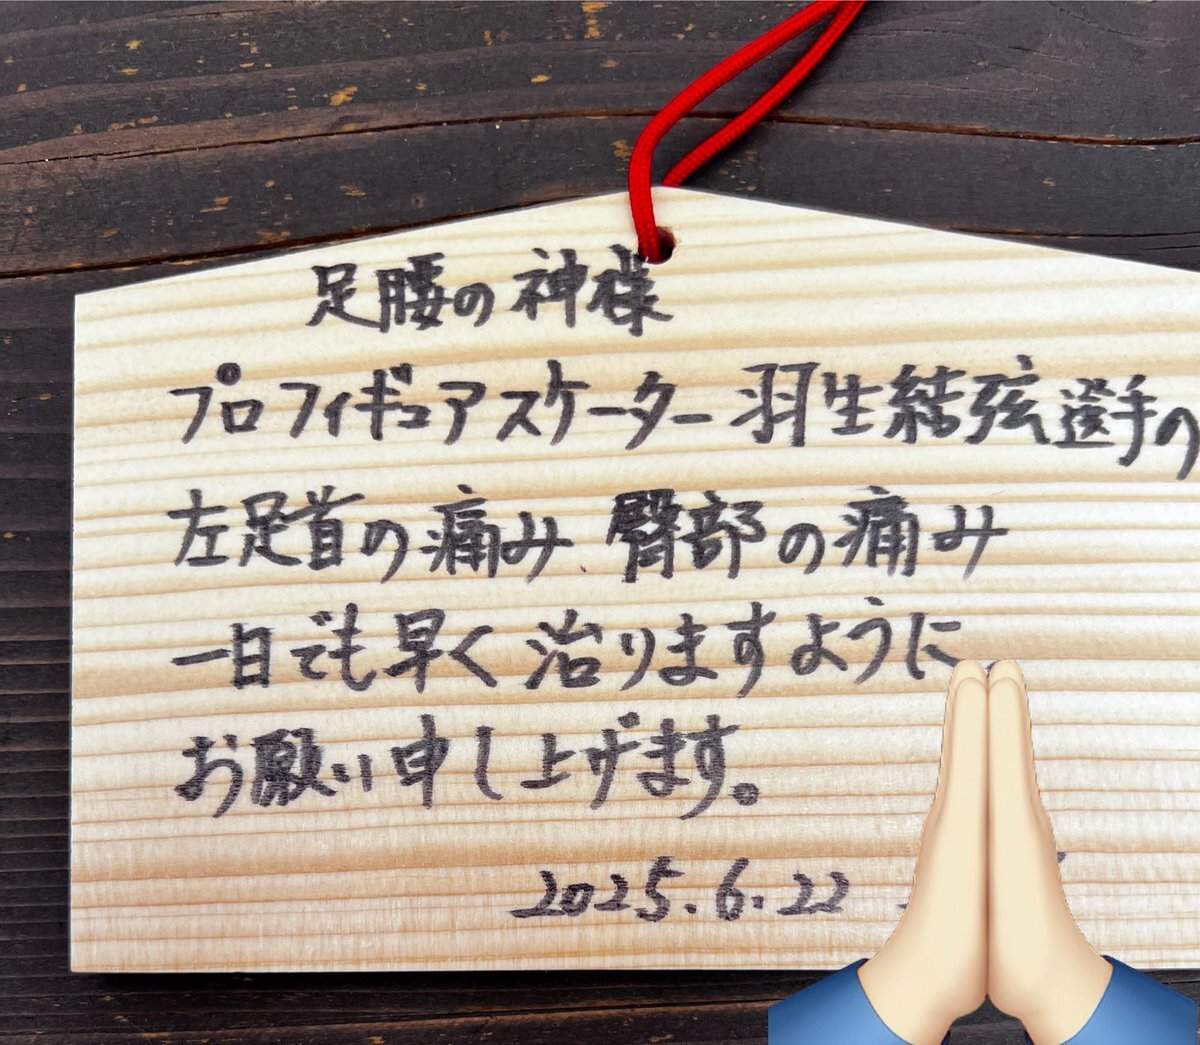 足腰の神様
プロフィギュアスケーター羽生結弦選手の
左足首の痛み、臀部の痛み
一日でも早く治りますように
お願い申し上げます。
2025.6.22